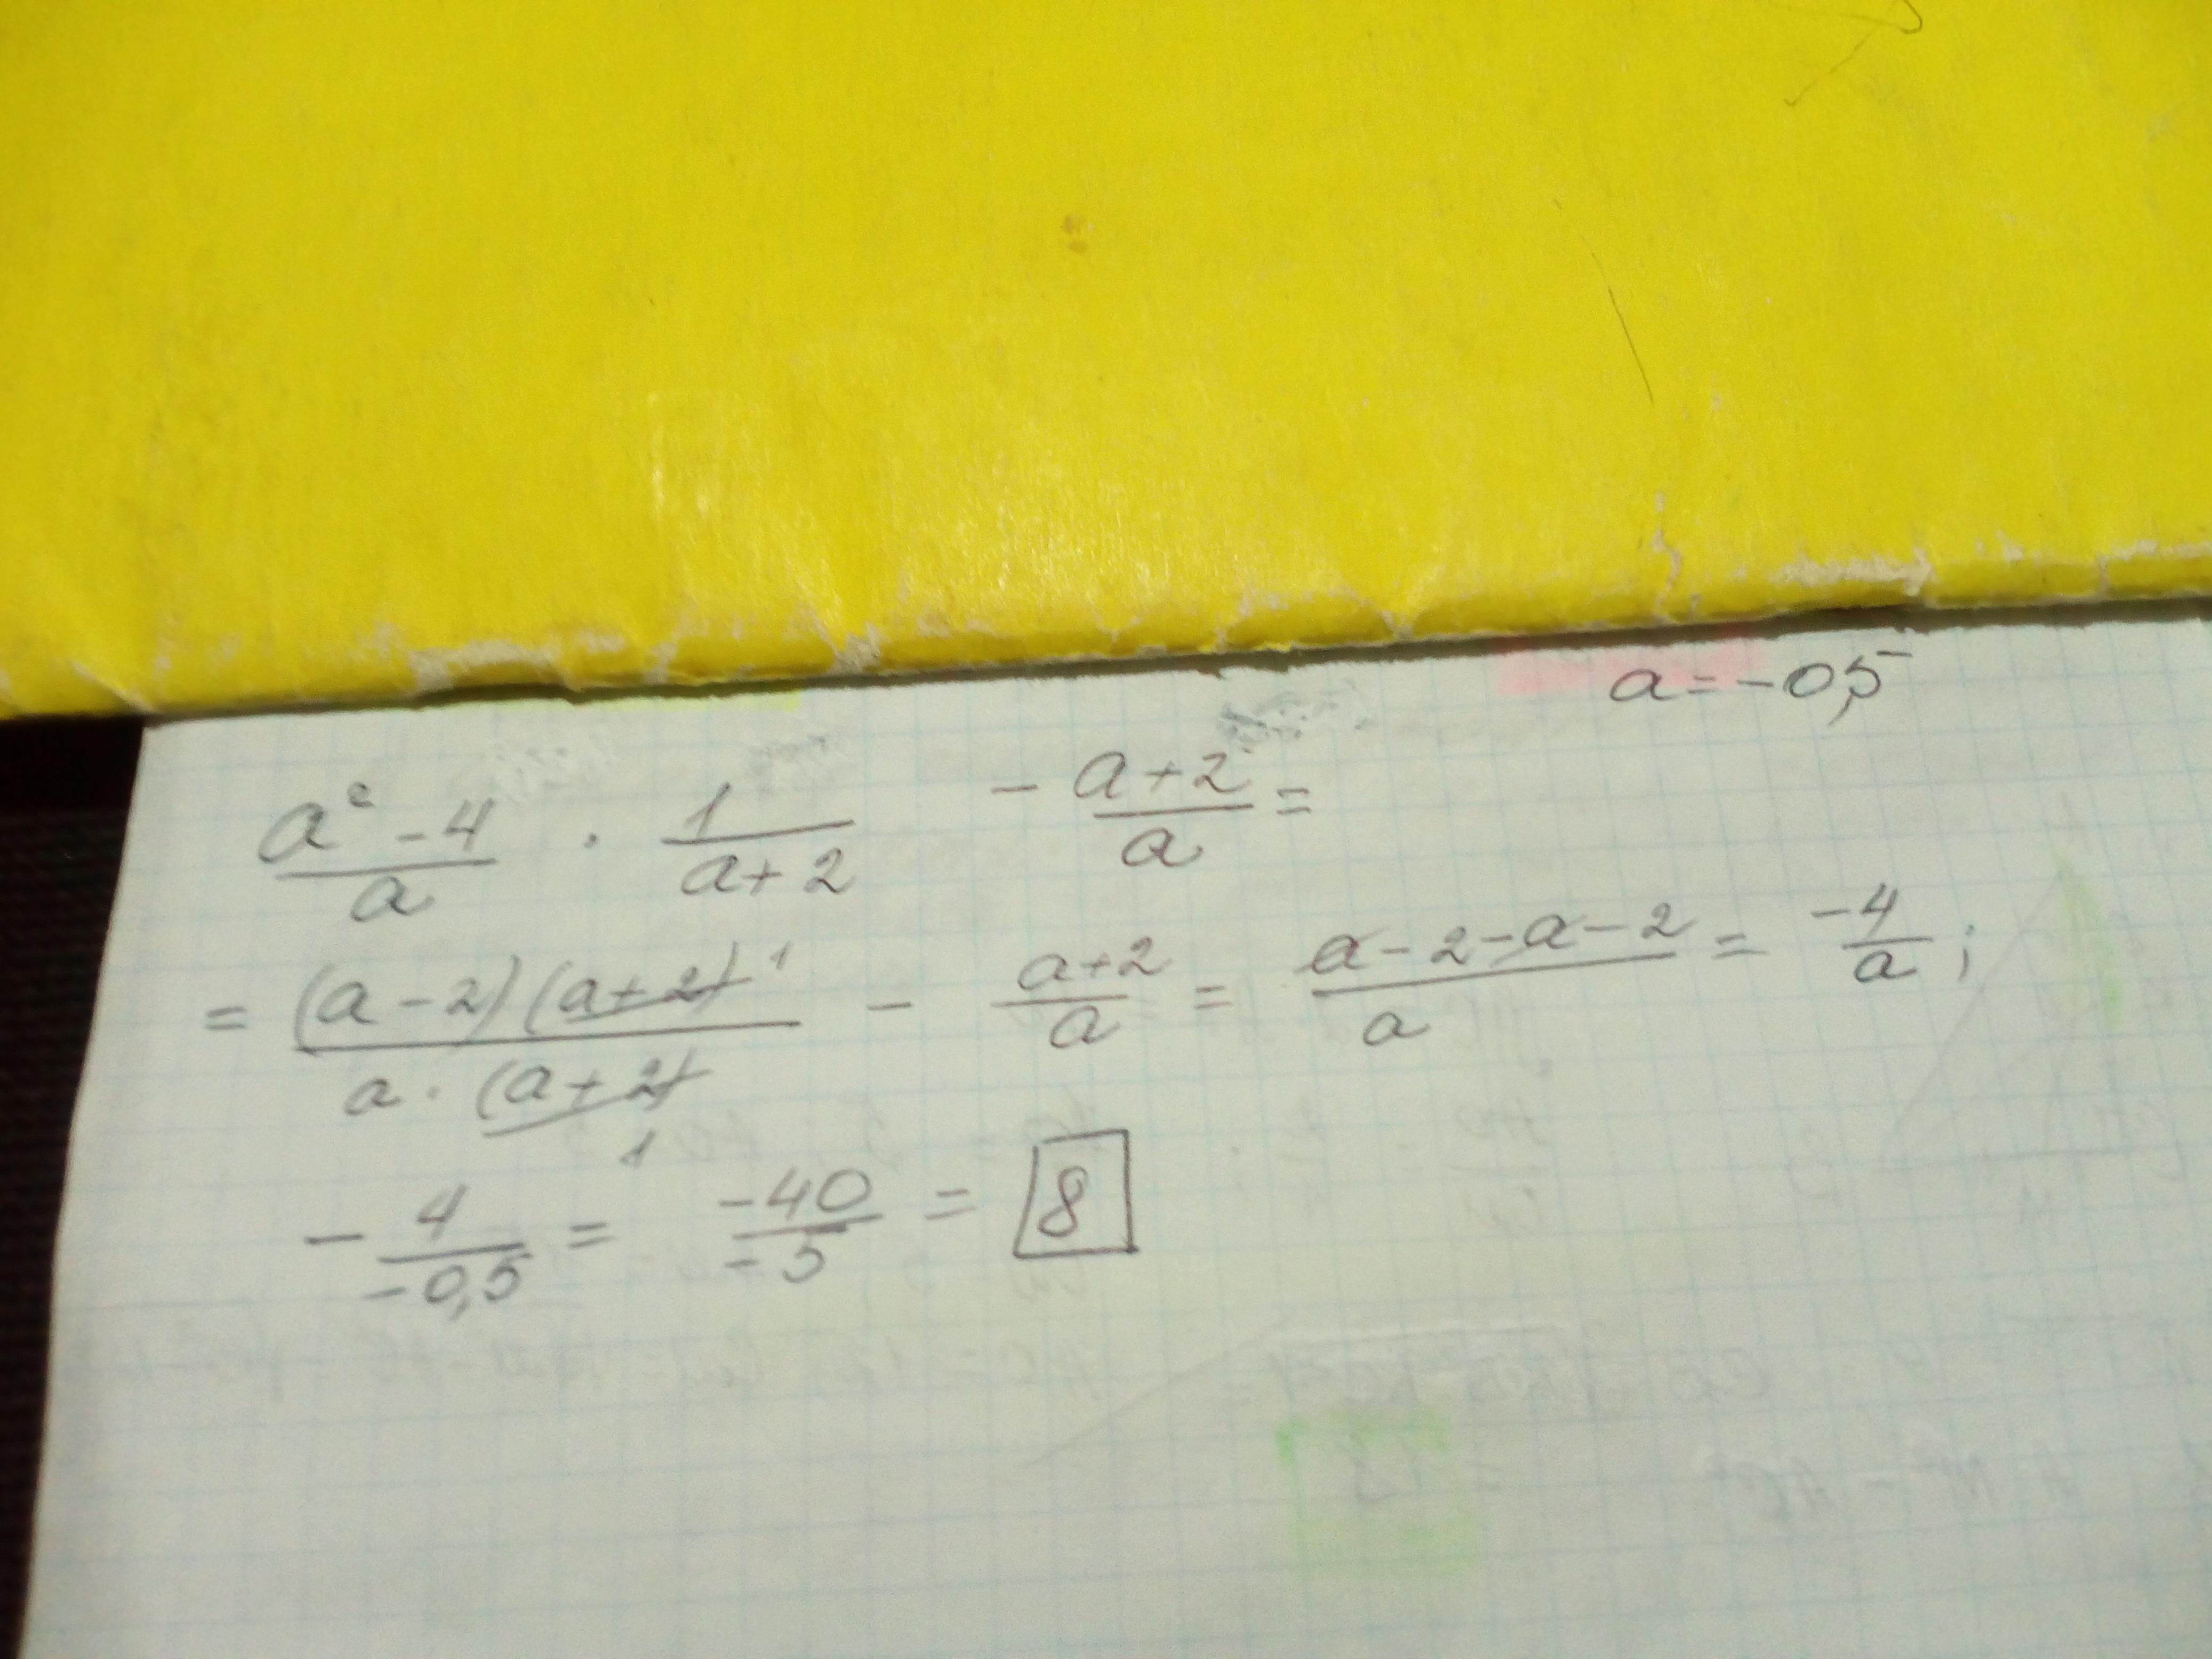 a = -0,5
\frac{a^2-4}{a} \cdot \frac{1}{a+2} - \frac{a+2}{a} =
= \frac{(a-2)(a+2)^1}{a \cdot (a+2)_1} - \frac{a+2}{a} = \frac{a-2-a-2}{a} = \frac{-4}{a};
-\frac{4}{-0,5} = \frac{-40}{-5} = 8